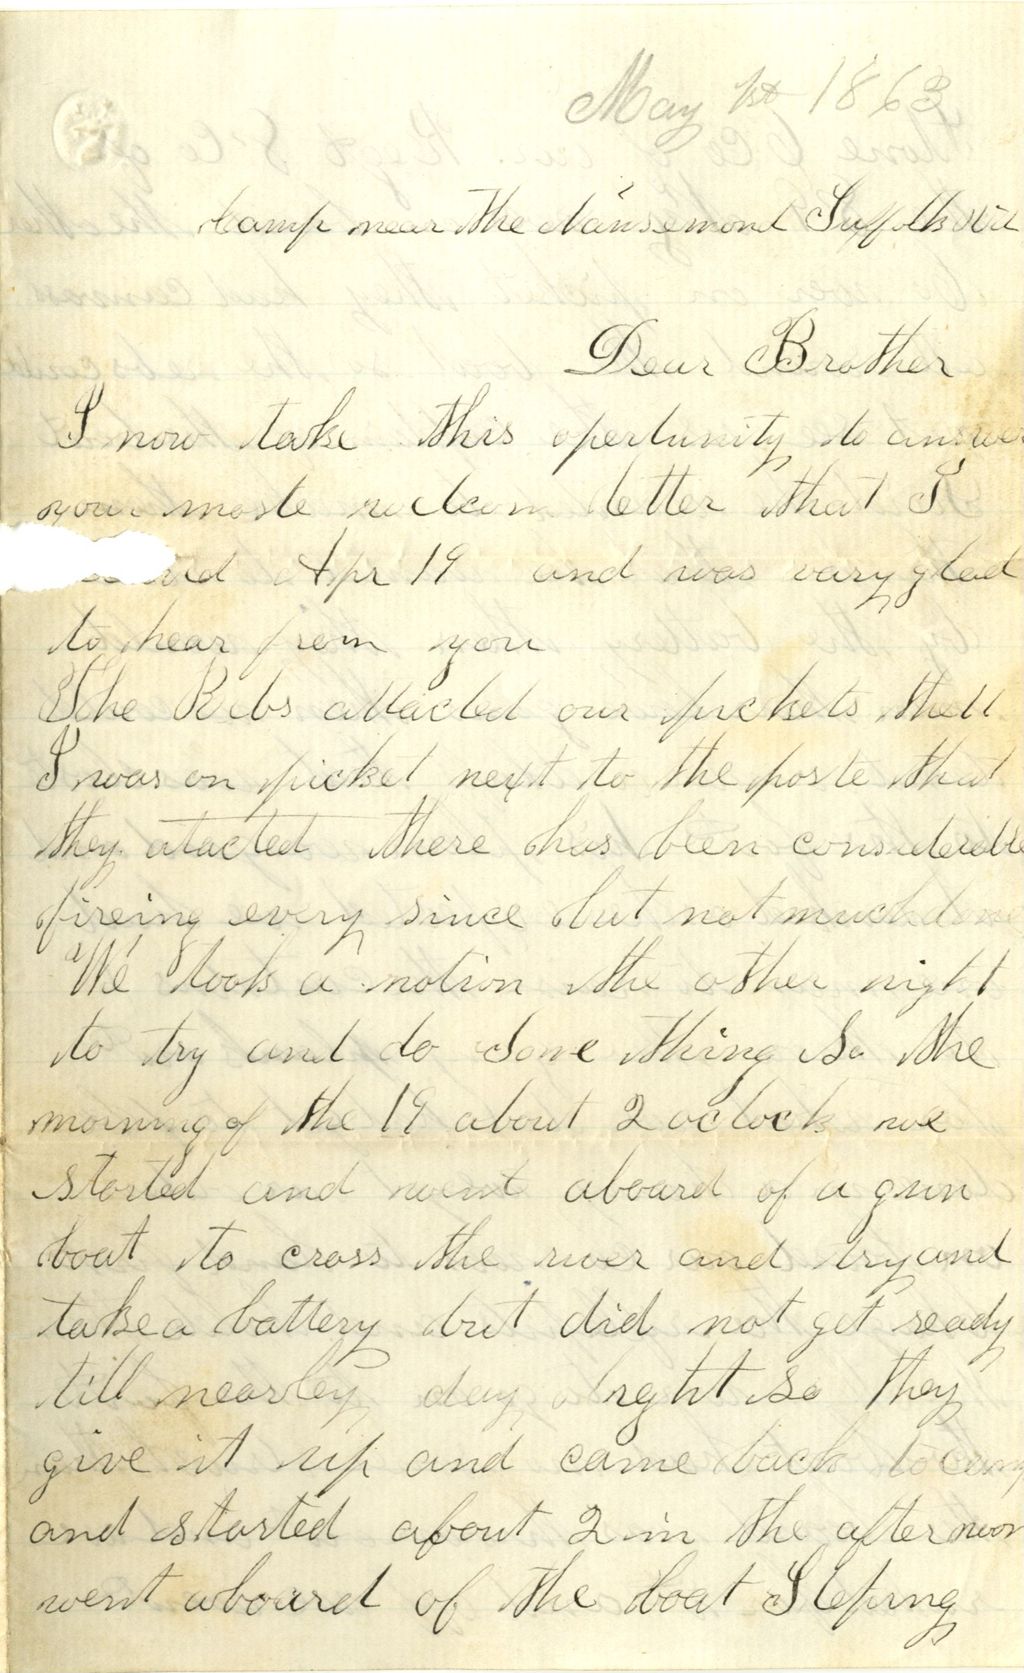 May 1st 1863
Camp near the Nansemond Suffolk
Dear Brother
I now take this opertunity to answer
your moste welcom letter that I
Apr 19 and was vary glad
to hear from you
The Rebs attacted our pickets the 11
I was on picket next to the poste that
they atacted there has been considerible
fireing every since but not much done
We took a notion the other night
to try and do some thing so the
morning of the 19 about 2 oclock we
started and went aboard of a gun
boat to cross the river and try and
take a battery but did not get ready
till nearley day light so they
give it up and came back to camp
and started about 2 in the afternoon
went aboard of the boat Steping